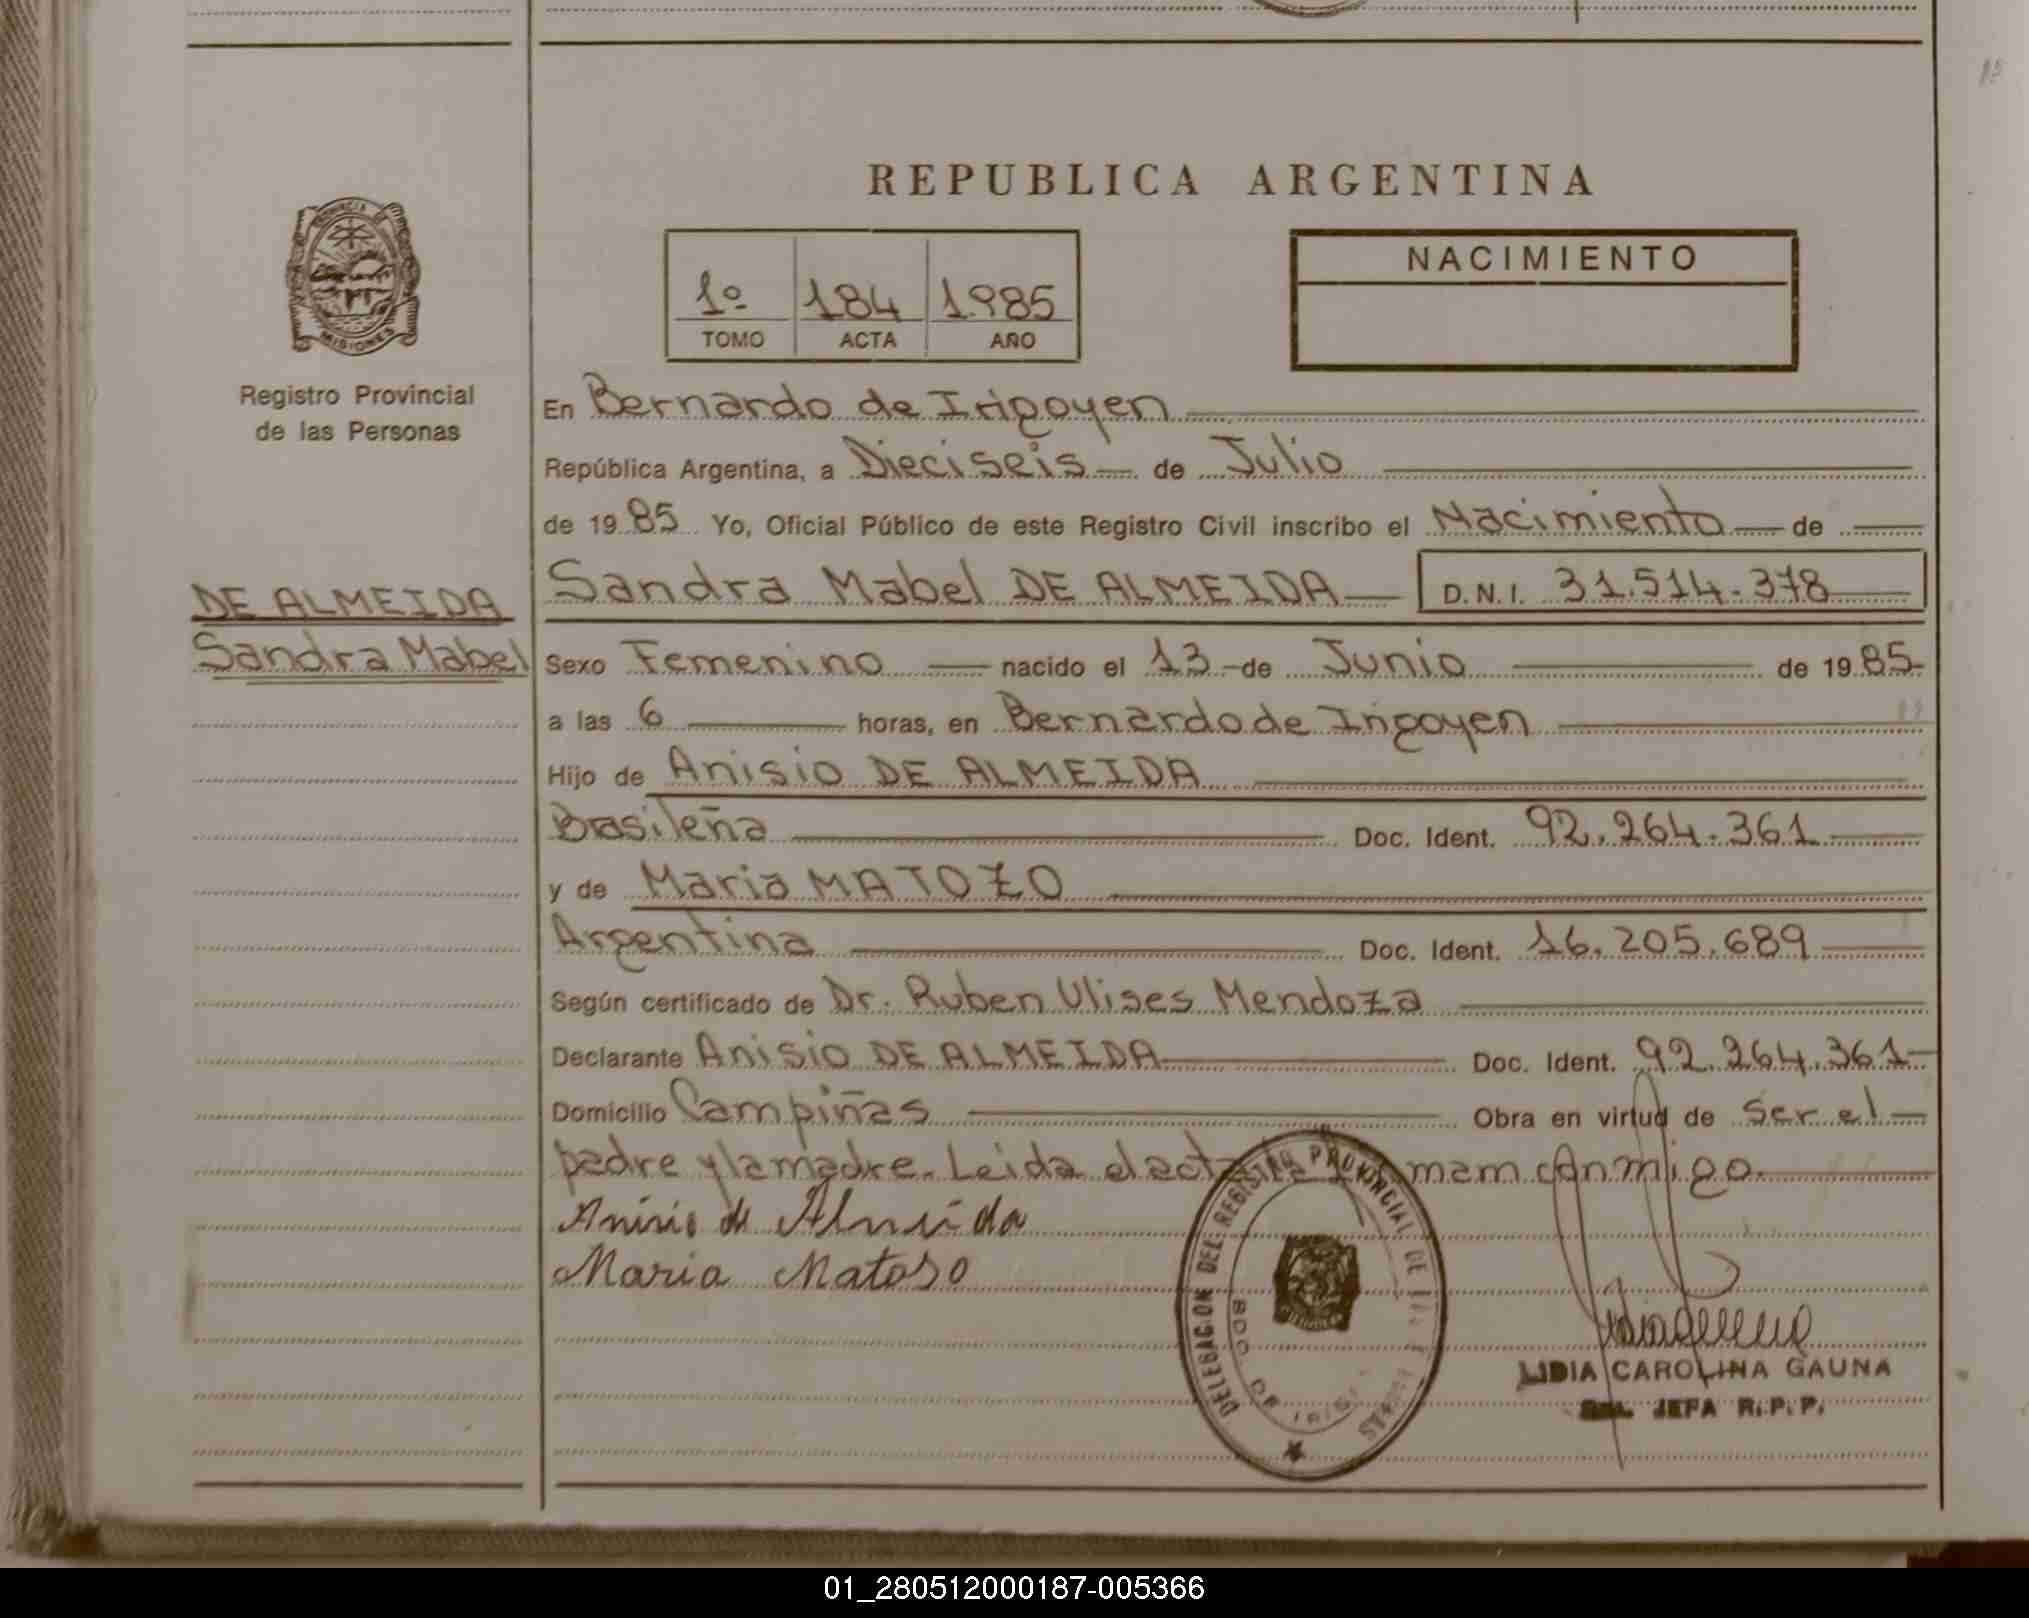 REPUBLICA ARGENTINA
PROVINCIA DE
MISIONES
Registro Provincial
de las Personas
1º 184 1985
TOMO ACTA AÑO
NACIMIENTO
En Bernardo de Irigoyen
República Argentina, a Dieciseis de Julio
de 1985 Yo, Oficial Público de este Registro Civil inscribo el Nacimiento de
DE ALMEIDA
Sandra Mabel
Sandra Mabel DE ALMEIDA D.N.I. 31.514.378
Sexo Femenino nacido el 13 de Junio de 1985
a las 6 horas, en Bernardo de Irigoyen
Hijo de Anisio DE ALMEIDA
Brasileña Doc. Ident. 92.264.361
y de Maria MATOZO
Argentina Doc. Ident. 16.205.689
Según certificado de Dr. Ruben Ulises Mendoza
Declarante Anisio DE ALMEIDA Doc. Ident. 92.264.361
Domicilio Campiñas Obra en virtud de ser el
padre y la madre. Leida el acta conmigo.
Anisio de Almeida
Maria Matoso
DELEGACION DEL REGISTRO PROVINCIAL DE
BDO. DE
LIDIA CAROLINA GAUNA
JEFA R.P.P.
01_280512000187-005366